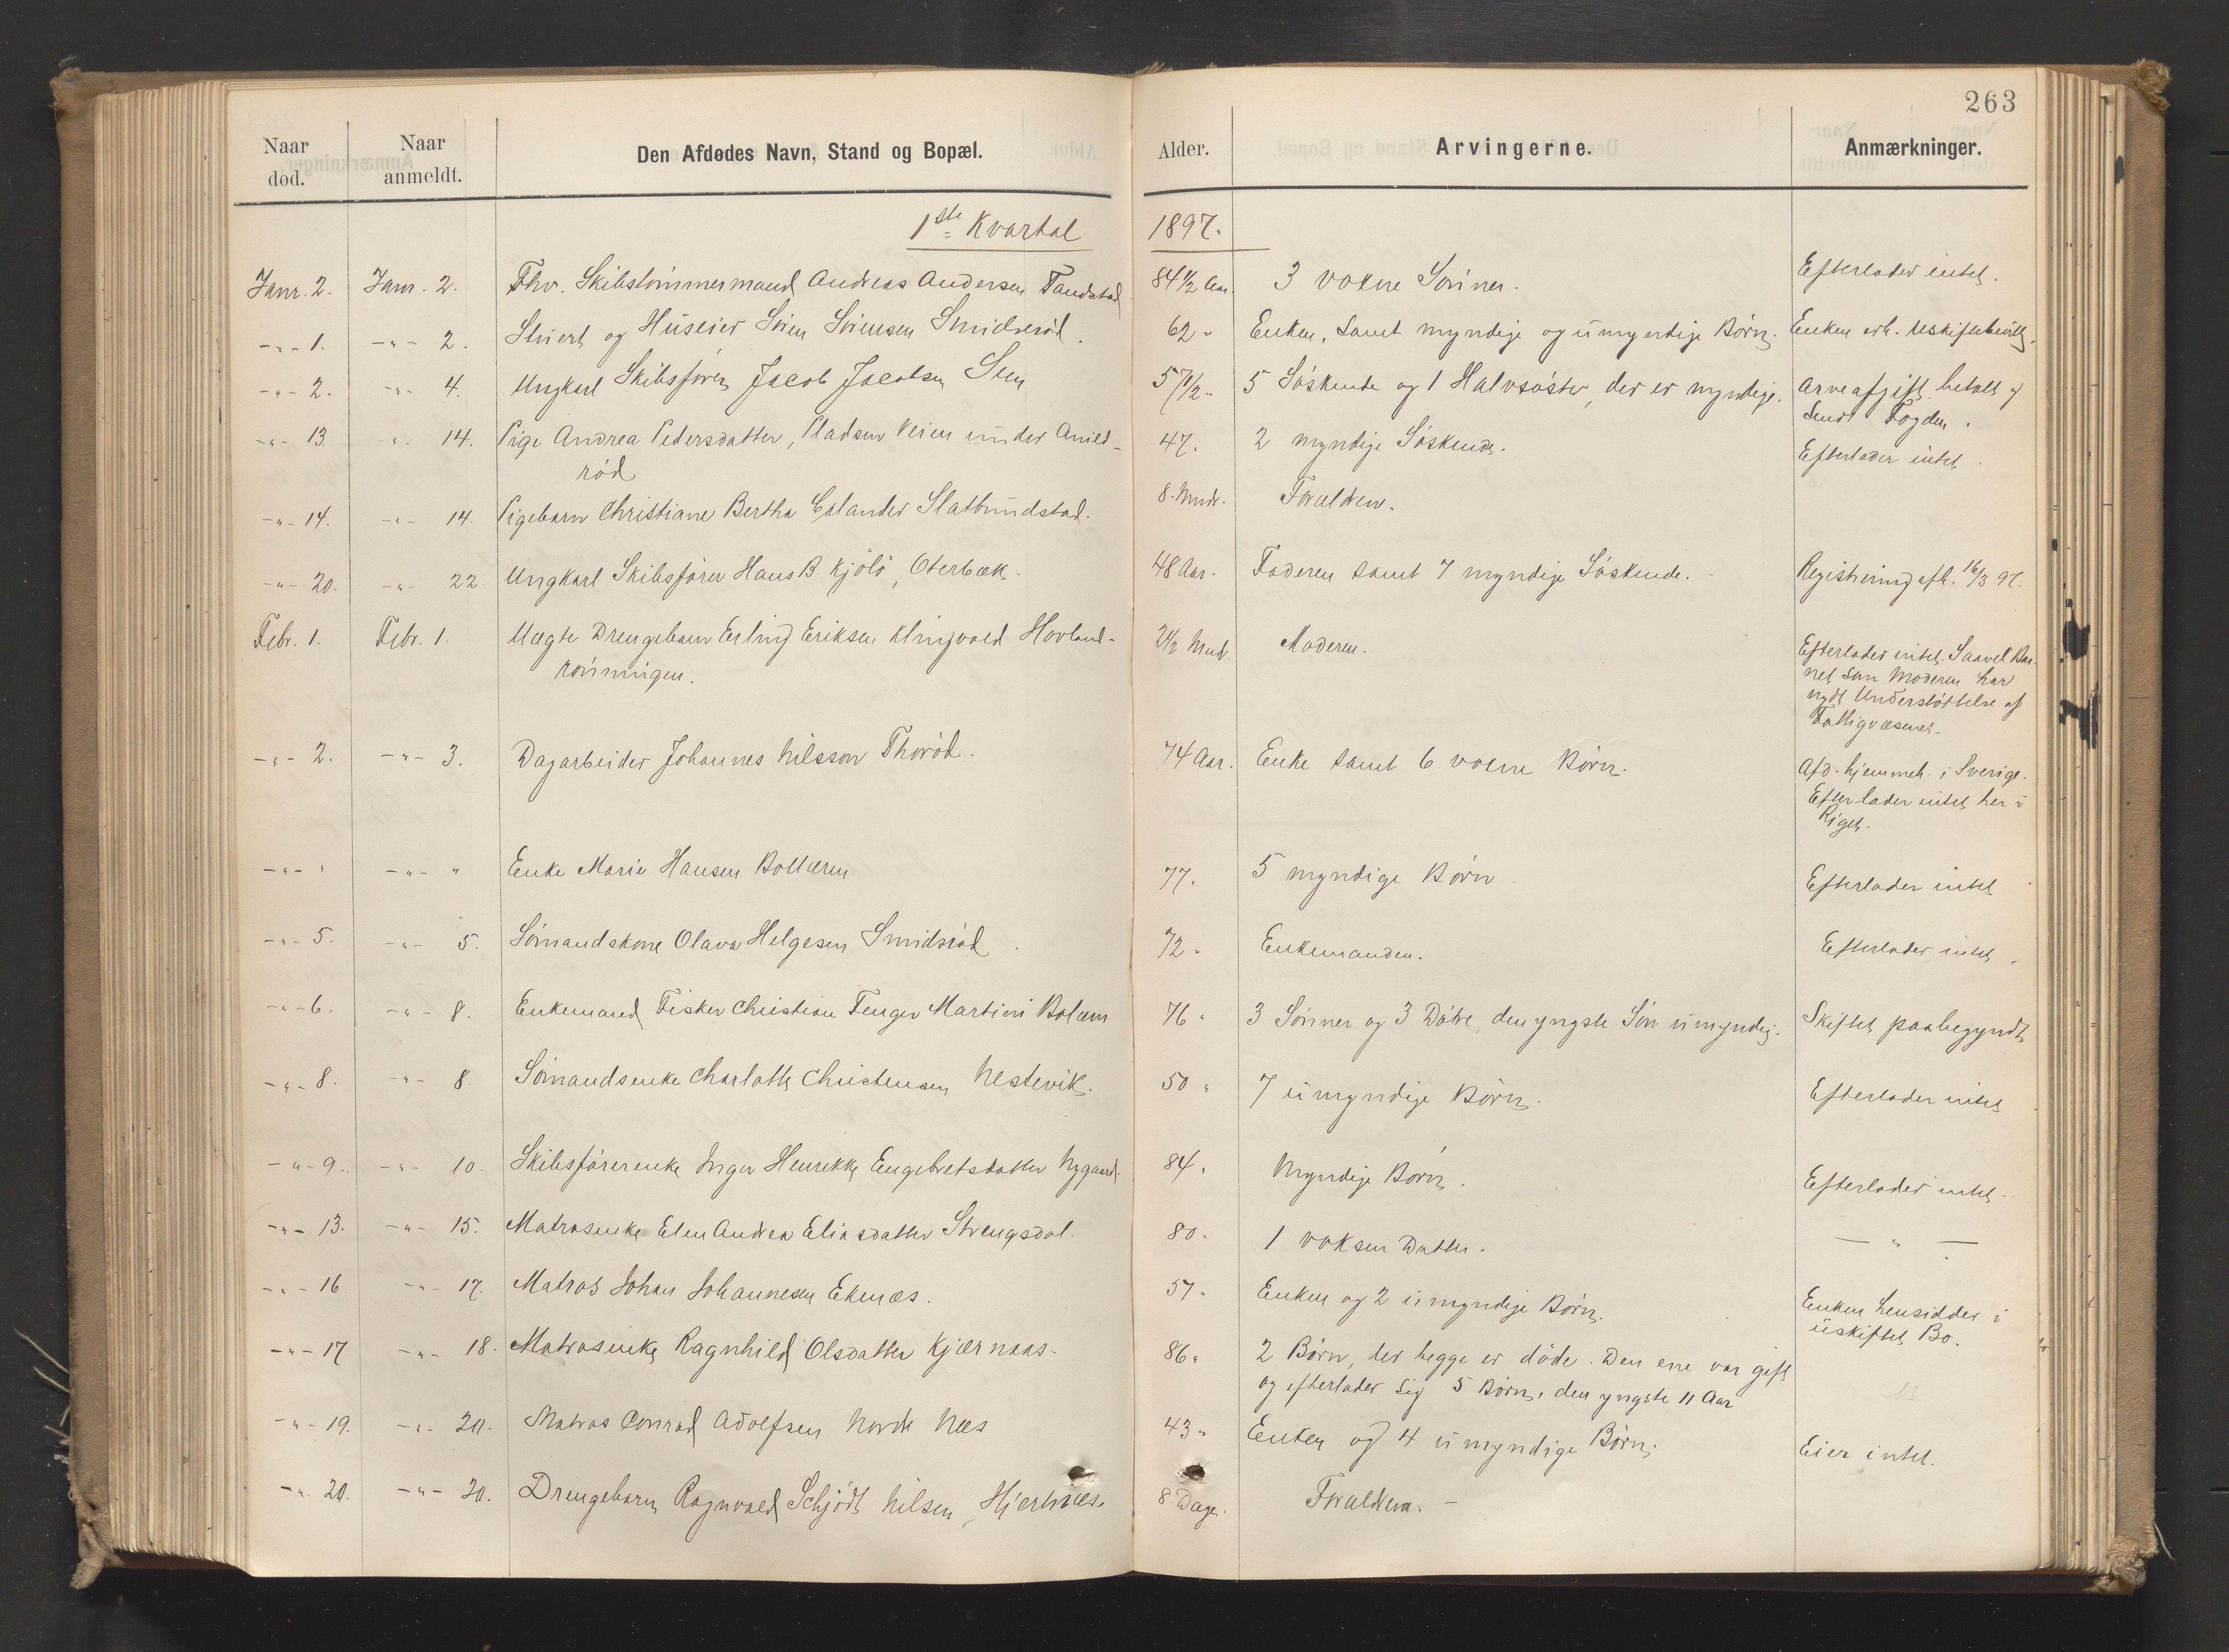 263
Naar død. Naar anmeldt. Den Afdødes Navn, Stand og Bopæl. Alder. Arvingerne. Anmærkninger.
1ste Kvartal 1897.
Janr. 2. Janr. 2. Fhv. Skibstömmermand Andreas Andersen Tandstad 84 1/2 Aar. 3 voxne Sönner. Efterlader intet.
-"- 1. -"- 2. Stuert og Huseier Sören Sörensen Smidsröd. 62 " Enken, samt myndige og umyndige Börn. Enken erh. Uskiftebevill.
-"- 2. -"- 4. Ungkarl Skibsförer Jacob Jacobsen Sten 57 1/2 " 5 Söskende og 1 Halvsöster, der er myndige. Arveafgift betalt og
sendt Fogden.
-"- 13. -"- 14. Pige Andrea Pedersdatter, Pladsen Veien under
röd 47. 2 myndige Söskende. Efterlader intet.
-"- 14. -"- 14. Pigebarn Christiane Bertha Calander 8. Mndr. Forældrene.
-"- 20. -"- 22. Ungkarl Skibsförer Hans B. Kjölö, Oterbæk. 48 Aar. Faderen samt 7 myndige Söskende. Registrering afh. 16/3 97.
Febr. 1. Febr. 1. Uægte Drengebarn Erling Eriksen Klingvold Hovland-
rönningen. 2 1/2 Mnd. Moderen. Efterlader intet. Saavel Bar-
net som Moderen har
nydt Understöttelse af
Fattigvæsenet.
-"- 2. -"- 3. Dagarbeider Johannes Nilsson Thoröd. 74 Aar. Enke samt 6 voxne Börn. Afd. hjemmeh. i Sverige.
Efterlader intet her i
Riget.
-"- " -"- " Enke Marie Hansen Bollærn 77. 5 myndige Börn Efterlader intet
-"- 5. -"- 5. Sömandskone Olava Helgesen Smidsröd 72 " Enkemanden. Efterlader intet.
-"- 6. -"- 8. Enkemand Fisker Christian Fenger Martini Bolærn 76 " 3 Sönner og 3 Dötre, den yngste Sön umyndig. Skiftet paabegyndt
-"- 8. -"- 8. Sömandsenke Charlotte Christensen Nestevik. 50 " 7 umyndige Börn. Efterlader intet
-"- 9. -"- 10. Skibsförerenke Inger Henrikke Engebretsdatter Nygaard. 84. Myndige Börn. Efterlader intet.
-"- 13. -"- 15. Matrosenke Elen Andrea Eliasdatter Strengsdal. 80. 1 voksen Datter. — " —
-"- 16. -"- 17. Matros Johan Johannesen Ekenæs. 57 " Enken og 2 umyndige Börn. Enken hensidder i
uskiftet Bo.
-"- 17 -"- 18. Matrosenke Ragnhild Olsdatter Kjærnaas. 86 " 2 Börn, der begge er döde. Den ene var gift
og efterlader sig 5 Börn, den yngste 11 Aar
-"- 19. -"- 20. Matros Conrad Adolfsen Nordre Næs 43 " Enken og 4 umyndige Börn. Eier intet.
-"- 20. -"- 20. Drengebarn Ragnvald Schjödt Nilsen, Hjertnæs. 8 Dage. Forældrene.